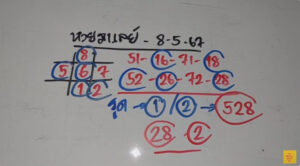 หวยมาเลย์ - 8-5-67
8
5 6 7
1 2
51-16-71-18
52-26-72-28
รูด → 1/2 → 528
28-2